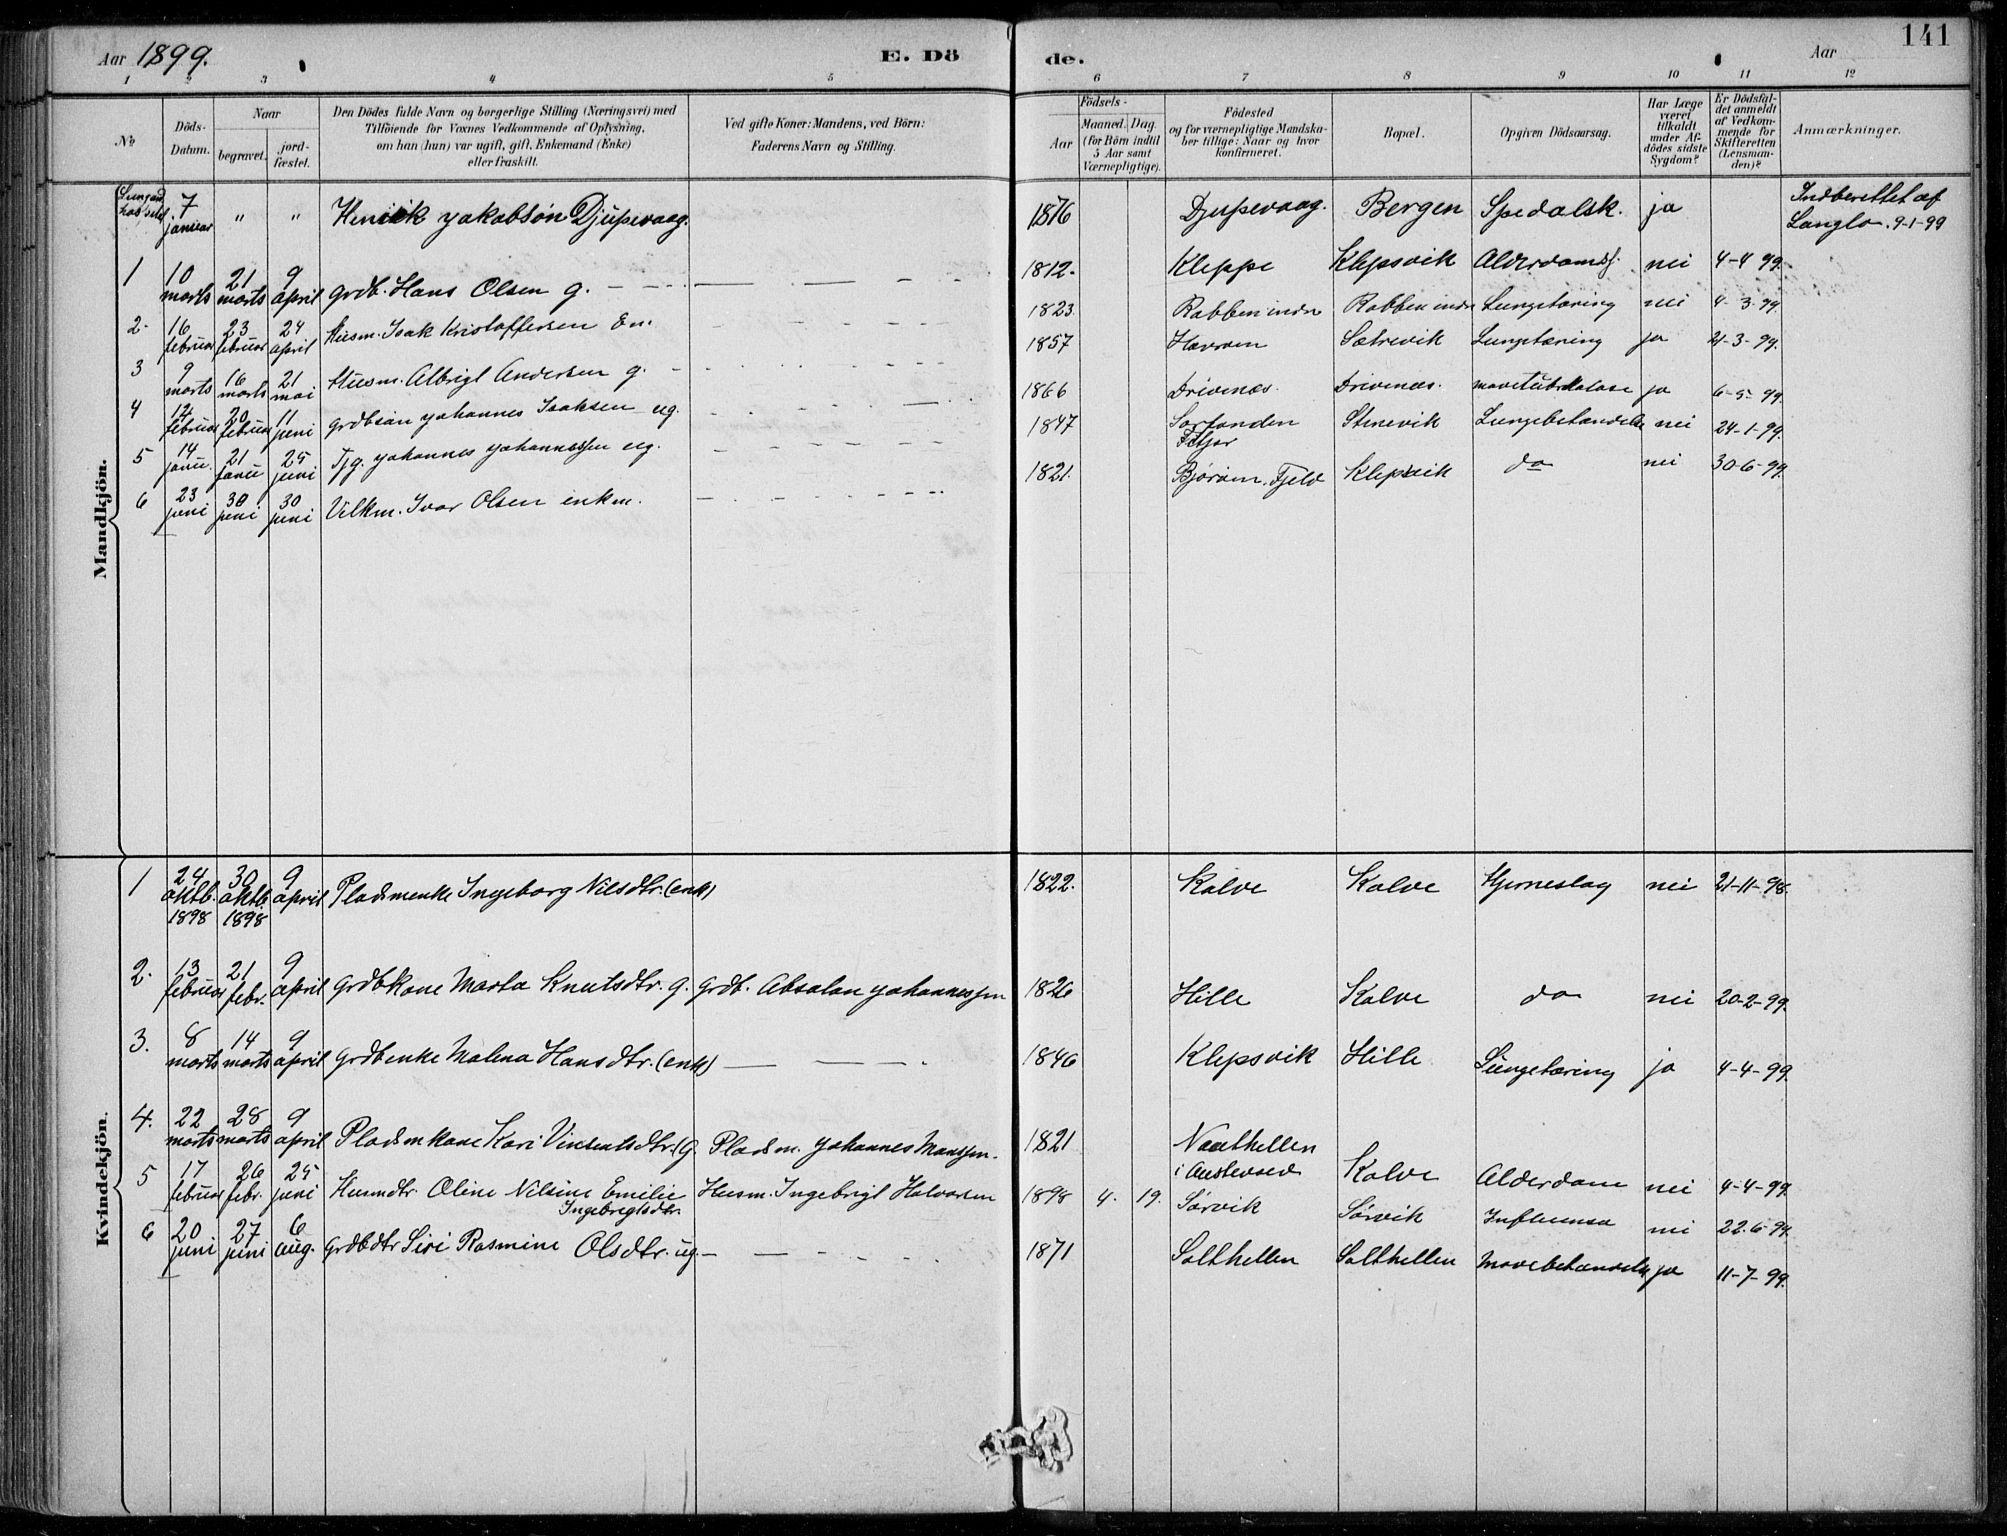 Aar 1899.
E. Dö
de.
Aar
141
1 2 3 4 5 6 7 8 9 10 11 12
№
Döds-Datum.
Naar
begravet.
jord-fæstet.
Den Dödes fulde Navn og borgerlige Stilling (Næringsvei) med
Tilföiende for Voxnes Vedkommende af Oplysning,
om han (hun) var ugift, gift, Enkemand (Enke)
eller fraskilt.
Ved gifte Koner: Mandens, ved Börn:
Faderens Navn og Stilling.
Födsels-
Aar
Maaned. Dag.
(for Börn indtil
5 Aar samt
Værnepligtige).
Födested
og for værnepligtige Mandska-
ber tillige: Naar og hvor
konfirmeret.
Bopæl.
Opgiven Dödsaarsag.
Har Læge
været
tilkaldt
under Af-
dödes sidste
Sygdom?
Er Dödsfal-
det anmeldt
af Vedkom-
mende for
Skifteretten
(Lensman-
den)?
Anmærkninger.
Mandkjön.
7 januar " " Henrik Jakobsön Djupevaag. 1876 Djupevaag. Bergen Spedalsk. ja Indberettet af Langlo. 9-1-99
1 10 marts 21 marts 9 april grdb. Hans Olsen g. 1812. Kleppe Klepsvik Alderdomsf. nei 4-4 99.
2. 16 februar 23 februar 24 april Husm. Isak Kristoffersen En. 1823 Robben indre Robben indre Lungetæring nei 4-3-99.
3 9 marts 16 marts 21 mai Husm. Albrigt Andersen g. 1857 Sætrevik Lungetæring ja 21-3-99.
4 12 februar 20 februar 11 juni grdbsøn Johannes Isaksen ug. 1866 Drivenæs. Drivenæs. ja 6-5-99.
5 14 janu. 21 janu 25 juni Tjg. Johannes Johannessen ug. 1847 Sortanden Fitjar Stenevik Lungebetændelse nei 24-1-99.
6 23 juni 30 juni 30 juni Vilkm. Ivar Olsen enkm. 1821. Klepsvik do nei 30-6-99.
Kvindekjön.
1 24 oktb. 1898 30 oktb. 1898 9 april Pladsmenke Ingeborg Nilsdtr. (enk) 1822. Kalve Kalve Hjerneslag nei 21-11-98.
2. 13 februar 21 febr. 9 april grdbkone Marta Knutsdtr. g. grdb. Absalon Johannessen 1826 Hille Kalve do nei 20-2-99.
3. 8 marts 14 marts 9 april grdbenke Malena Hansdtr. (enk) 1846 Klepsvik Hille Lungetæring ja 4-4-99.
4. 22 marts 28 marts 9 april Pladsmkone Kari Vinsentsdtr. (g. Pladsm. Johannes Monssen. 1821 i Austevold Kalve Alderdom nei 4-4-99.
5 17 februar 26 febr. 25 juni Husmdtr. Oline Nilsine Emilie Ingebrigtsdtr. Husm. Ingebrigt Halvorsen 1898 4. 19. Sørvik Sørvik Influensa nei 22-6-99.
6 20 juni 27 juni 6 aug. grdbdtr Siri Rasmine Olsdtr. ug. 1871 Salthellen Salthellen Mavebetændelse ja 11-7-99.